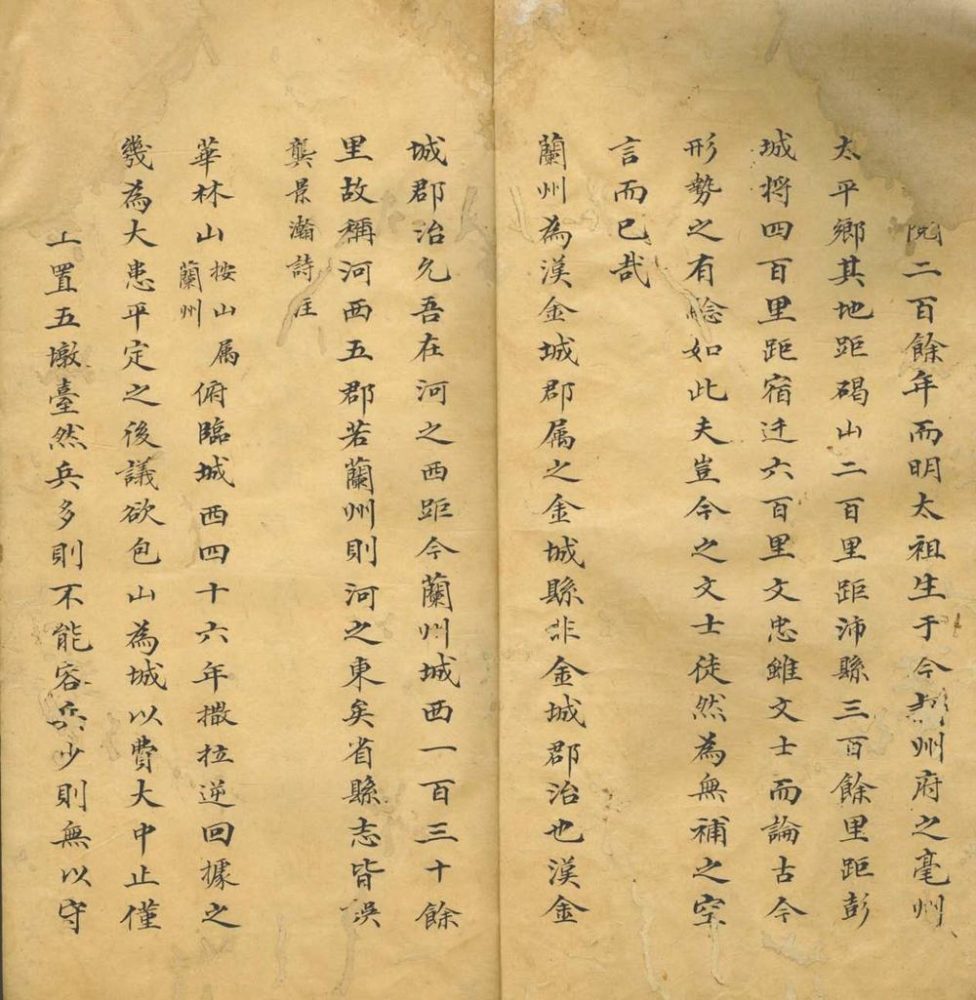 院二百餘年而明太祖生于今州府之亳州
太平鄉其地距碭山二百里距沛縣三百餘里距彭
城将四百里距宿迁六百里文忠雖文士而論古今
形勢之有騐如此夫豈今之文士徒然為無補之空
言而已哉
蘭州為漢金城郡属之金城縣非金城郡治也漢金
城郡治允吾在河之西距今蘭州城西一百三十餘
里故稱河西五郡若蘭州則河之東矣省縣志皆誤
龔景瀚詩注
華林山按山属蘭州俯臨城西四十六年撒拉逆回據之
幾為大患平定之後議欲包山為城以費大中止僅
上置五墩臺然兵多則不能容兵少則無以守